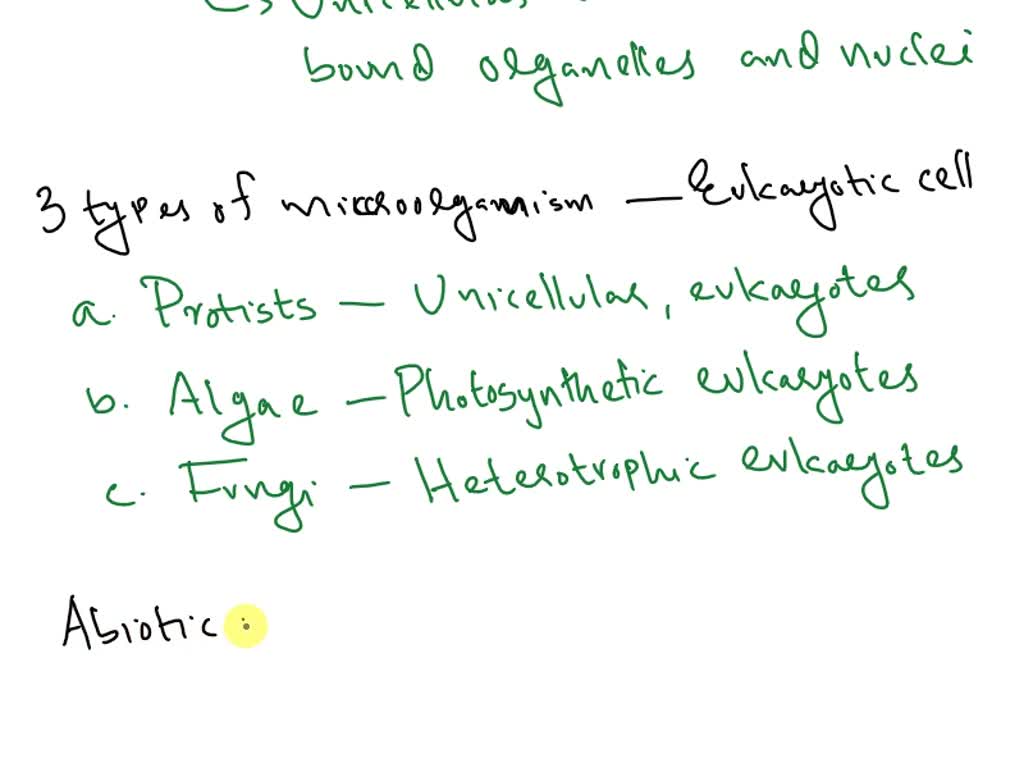 Unicellular
bound organelles and nuclei
3 types of microorganism — Eukaryotic cell
a. Protists — Unicellular, eukaryotes
b. Algae — Photosynthetic eukaryotes
c. Fungi — Heterotrophic eukaryotes
Abiotic :